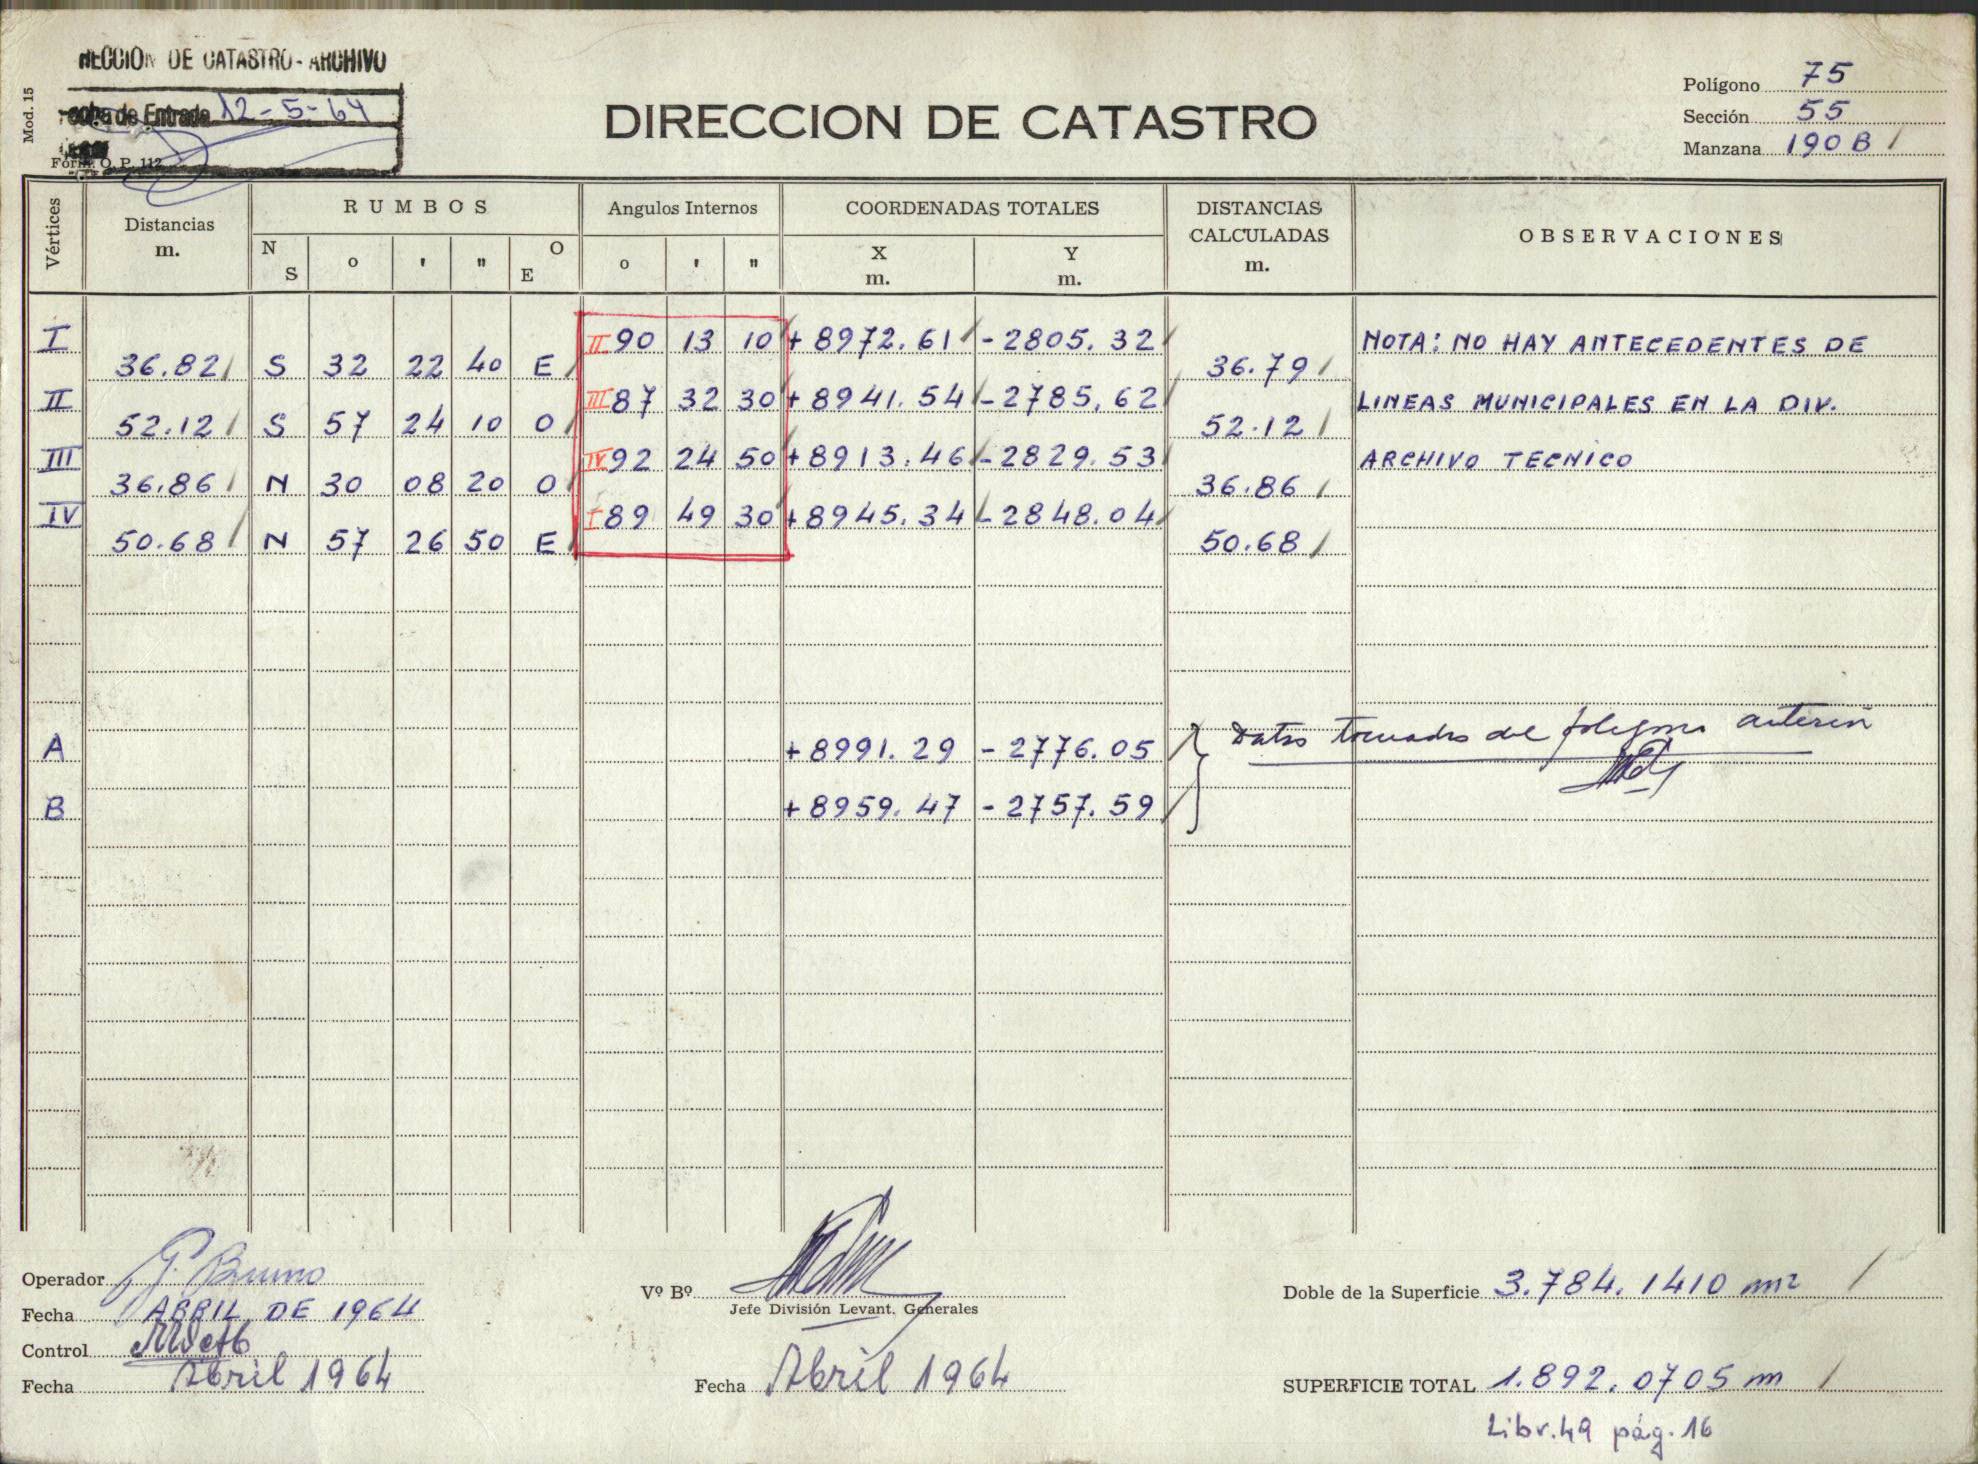 DE CATASTRO - ARCHIVO
Mod. 15
de Entrada 12-5-64
Form. O. P. 112
DIRECCION DE CATASTRO
Polígono 75
Sección 55
Manzana 190 B /
Vértices
Distancias
m.
RUMBOS
N
S
o
'
"
O
E
Angulos Internos
o
'
"
COORDENADAS TOTALES
X
m.
Y
m.
DISTANCIAS
CALCULADAS
m.
OBSERVACIONES
I II 90 13 10 + 8972.61 - 2805.32 NOTA: NO HAY ANTECEDENTES DE
36.82 S 32 22 40 E 36.79
II III 87 32 30 + 8941.54 - 2785,62 LINEAS MUNICIPALES EN LA DIV.
52.12 S 57 24 10 O 52.12
III IV 92 24 50 + 8913.46 - 2829.53 ARCHIVO TECNICO
36.86 N 30 08 20 O 36.86
IV I 89 49 30 + 8945.34 - 2848.04
50.68 N 57 26 50 E 50.68
A + 8991.29 - 2776.05 Datos tomados del polígono anterior
B + 8959.47 - 2757.59
Operador G. Bruno
Fecha ABRIL DE 1964
Control
Fecha Abril 1964
Vº Bº
Jefe División Levant. Generales
Fecha Abril 1964
Doble de la Superficie 3.784.1410 m²
SUPERFICIE TOTAL 1.892.0705 m
Libr. 49 pág. 16